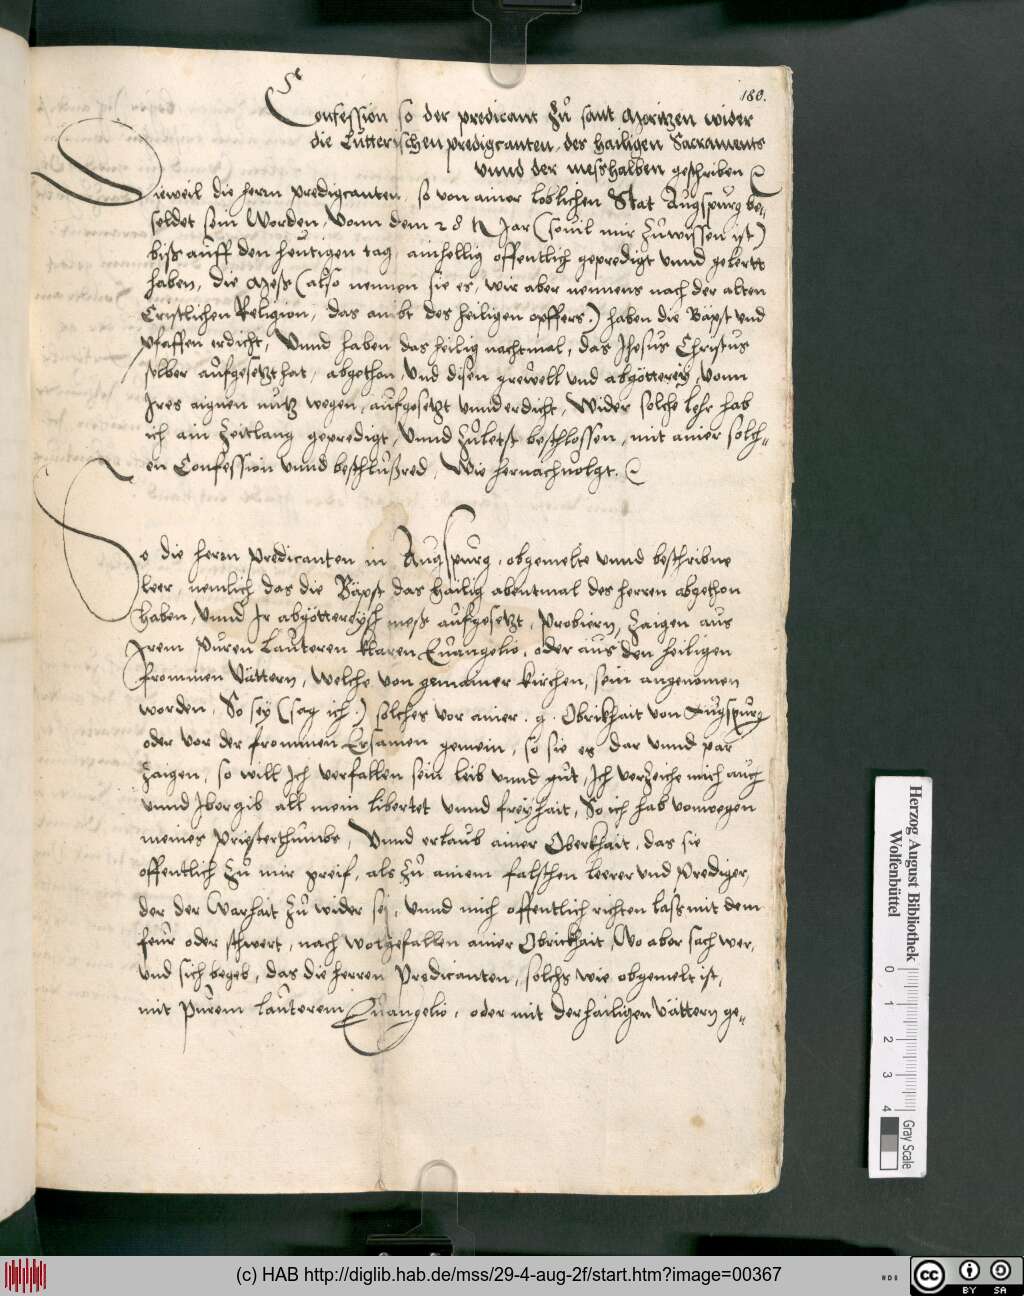 180.
Confession so der predicant zů sant Moritzen wider
die Lutterischen predigcanten, des hailigen Sacraments
vnnd der messhalben geschriben
Dieweil die herrn predigcanten, so von ainer loblichen Stat Augspurg be-
soldet sein worden, vonn dem 28 Jar (souil mir zůwissen ist)
biß auff den heutigen tag, ainhellig offentlich gepredigt vnnd gelertt
haben, die Mess (also nennen sie es, wir aber nennens nach der alten
Cristlichen Religion, das ambt des heiligen opffers:) haben die Bäpst vnd
pfaffen erdicht, Vnnd haben das heilig nachtmal, das Jhesus Christus
selber auffgesetzt hat, abgethon, Vnd disen grewell vnd abgötterey, vonn
Ires aignen nutz wegen, auffgesetzt vnnd erdicht, Wider solche lehr hab
ich ain zeitlang gepredigt, Vnnd zůletst beschlossen, mit ainer solch-
en Confession vnnd beschlußred, Wie hernachuolgt.
So die herrn predicanten in Augspurg, obgemelte vnnd beschribne
leer, nemlich das die Bäpst das hailig abentmal des herren abgethon
haben, vnnd Ir abgötterysch mess auffgesetzt, probiern, zaigen aus
Irem puren Lauteren klaren Euangelio, oder aus den heiligen
frommen Vättern, welche von gemainer kirchen, sein angenomen
worden. So sey (sag ich:) solches vor ainer .g. Obrikhait von Augspurg
oder vor der frommen Ersamen gemein, so sie es dar vnnd par
zaigen, so will Ich verfallen sein leib vnnd gůt, Ich verzeiche mich auch
vnnd Ibergib all mein libertet vnnd freyhait, So ich hab vonwegen
meines Priesterthumbs, Vnnd erlaub ainer Oberkhait, das sie
offentlich zů mir greif, als zů ainem falschen leerer vnd Prediger,
der der Warhait zů wider sej, vnnd mich offentlich richten lass mit dem
feur oder schwert, nach wolgefallen ainer Obrickhait, Wo aber sach wer,
vnd sich begeb, das die herren Predicanten, solchs wie obgemelt ist,
mit purem lauterem Euangelio, oder mit der hailigen Vättern ge-
Herzog August Bibliothek
Wolfenbüttel
0 1 2 3 4
Gray Scale
(c) HAB http://diglib.hab.de/mss/29-4-aug-2f/start.htm?image=00367
cc BY SA